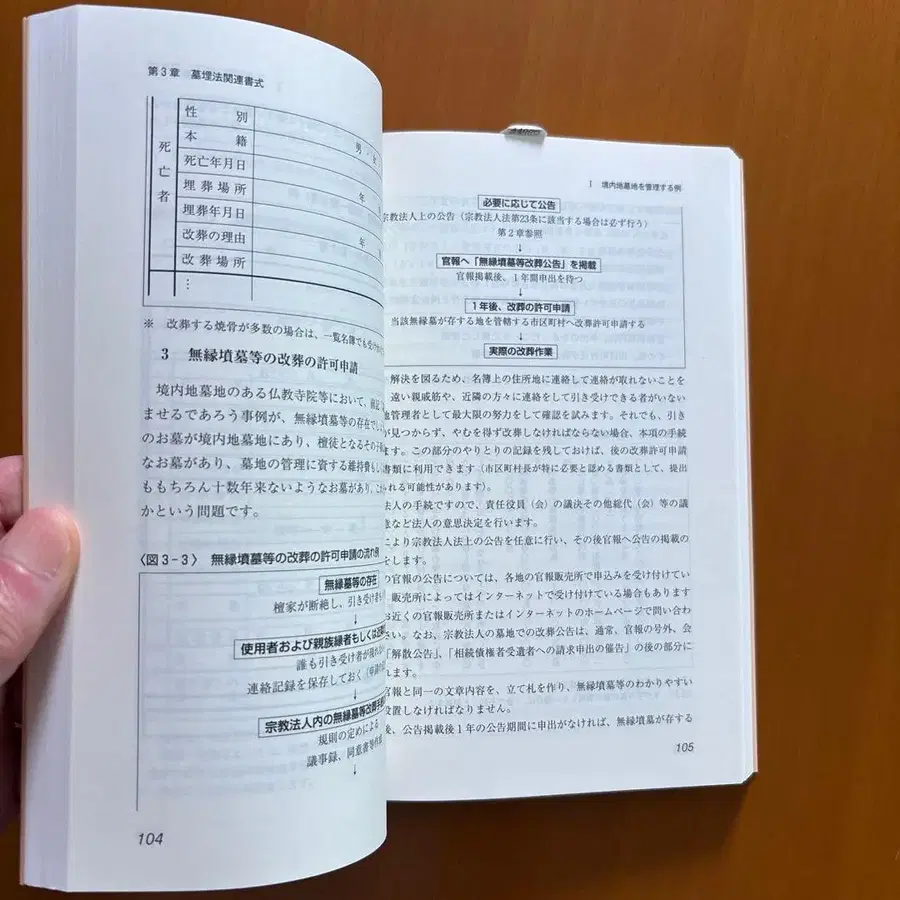 第3章 墓埋法関連書式
死亡者
性別
男・女
本籍
死亡年月日
年
埋葬場所
埋葬年月日
年
改葬の理由
改葬場所
⋮
※ 改葬する焼骨が多数の場合は、一覧名簿でも受け
3 無縁墳墓等の改葬の許可申請
境内地墓地のある仏教寺院等において、
ませるであろう事例が、無縁墳墓等の存在でし
のお墓が境内地墓地にあり、檀徒となるその子
なお墓があり、墓地の管理に資する維持費も
ももちろん十数年来ないようなお墓があり、
かという問題です。
〈図3-3〉 無縁墳墓等の改葬の許可申請の流れ例
無縁墓等の存在
檀家が断絶し、引き受け者も
↓
使用者および親族縁者もしくは
誰も引き受け者が現れ
連絡記録を保存しておく(申請の
↓
宗教法人内の無縁墓等改葬手続
規則の定めによる
議事録、同意書等作成
↓
104
1 境内地墓地を管理する例
必要に応じて公告
宗教法人上の公告(宗教法人法第23条に該当する場合は必ず行う)
第2章参照
↓
官報へ「無縁墳墓等改葬公告」を掲載
官報掲載後、1年間申出を待つ
↓
1年後、改葬の許可申請
当該無縁墓が存する地を管轄する市区町村へ改葬許可申請する
↓
実際の改葬作業
解決を図るため、名簿上の住所地に連絡して連絡が取れないことを
遠い親戚筋や、近隣の方々に連絡をして引き受けできる者がいない
地管理者として最大限の努力をして確認を試みます。それでも、引き
が見つからず、やむを得ず改葬しなければならない場合、本項の手続
ます。この部分のやりとりの記録を残しておけば、後の改葬許可申請
書類に利用できます(市区町村長が特に必要と認める書類として、提出
される可能性があります)。
法人の手続ですので、責任役員(会)の議決その他総代(会)等の議
意など法人の意思決定を行います。
により宗教法人法上の公告を任意に行い、その後官報へ公告の掲載の
をします。
の官報の公告については、各地の官報販売所で申込みを受け付けてい
販売所によってはインターネットで受け付けている場合もあります
お近くの官報販売所またはインターネットのホームページで問い合わ
さい。なお、宗教法人の墓地での改葬公告は、通常、官報の号外、会
「解散公告」、「相続債権者受遺者への請求申出の催告」の後の部分に
れます。
官報と同一の文章内容を、立て札を作り、無縁墳墓等のわかりやすい
設置しなければなりません。
後、公告掲載後1年の公告期間に申出がなければ、無縁墳墓が存する
105